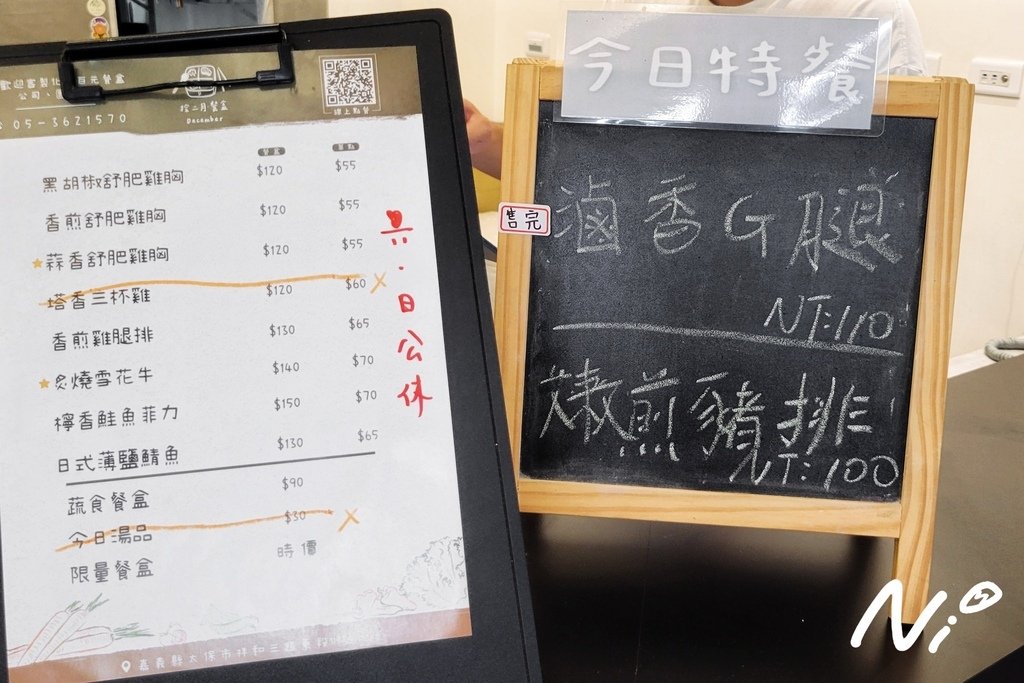 歡迎客製化 百元餐盒
05-3621570
拾二月餐盒
December
線上點餐
餐盒 單點
黑胡椒舒肥雞胸 $120 $55
香煎舒肥雞胸 $120 $55
蒜香舒肥雞胸 $120 $55
塔香三杯雞 $120 $60
香煎雞腿排 $130 $65
炙燒雪花牛 $140 $70
檸香鮭魚菲力 $150 $70
日式薄鹽鯖魚 $130 $65
蔬食餐盒 $90
今日湯品 $30
限量餐盒 時價
日公休
嘉義縣太保市祥和三路東段
今日特餐
售完
滷香G腿
NT:110
嫩煎豬排
NT:100
Ni